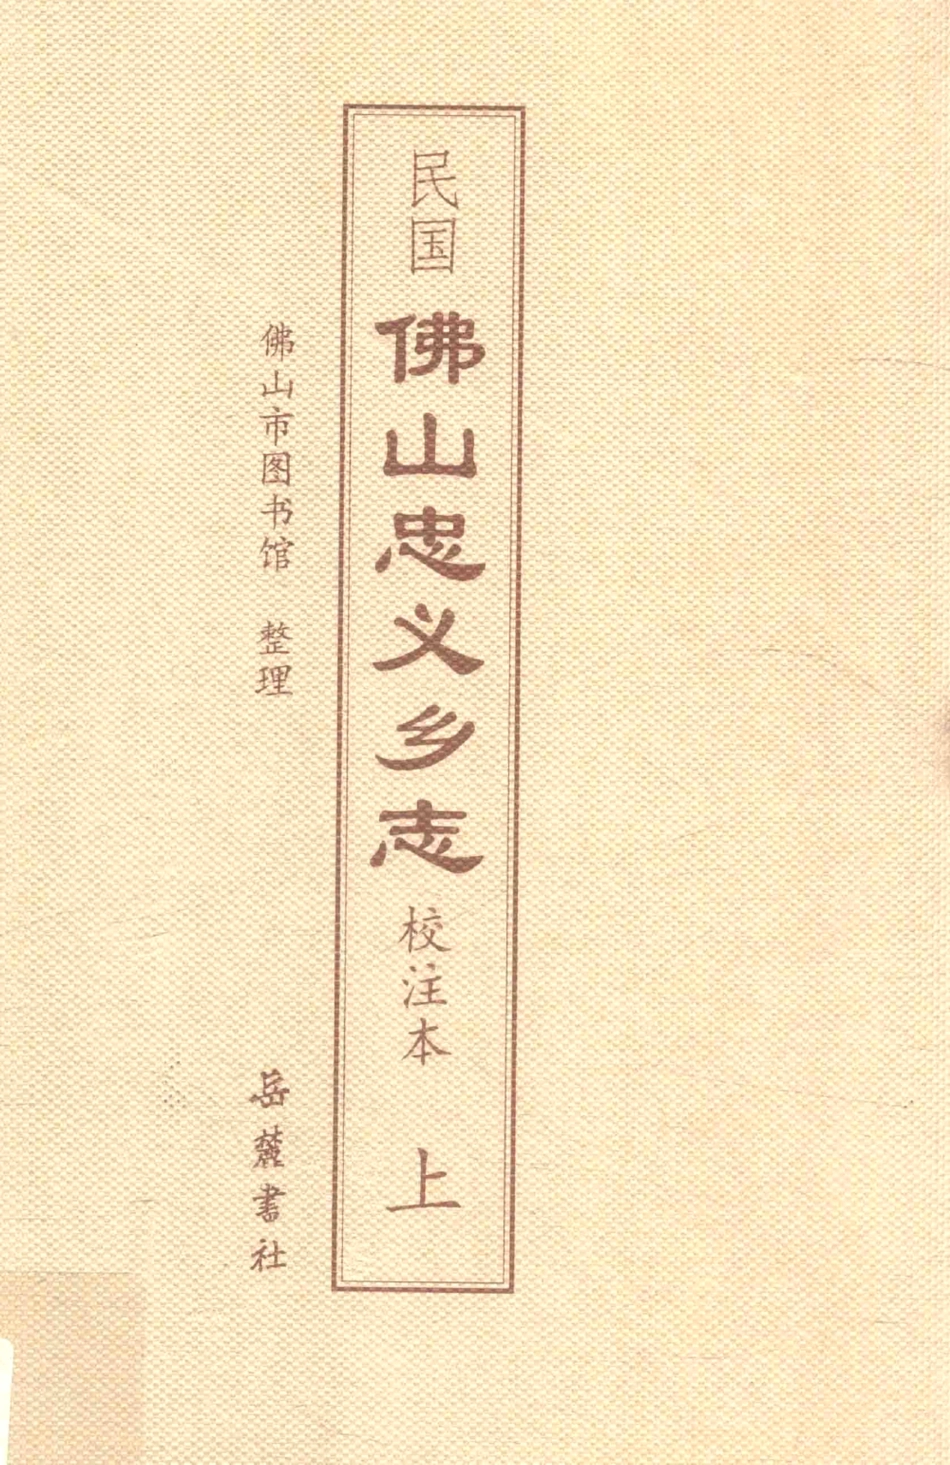 民国佛山忠义乡志校注本 上
佛山市图书馆 整理
岳麓書社